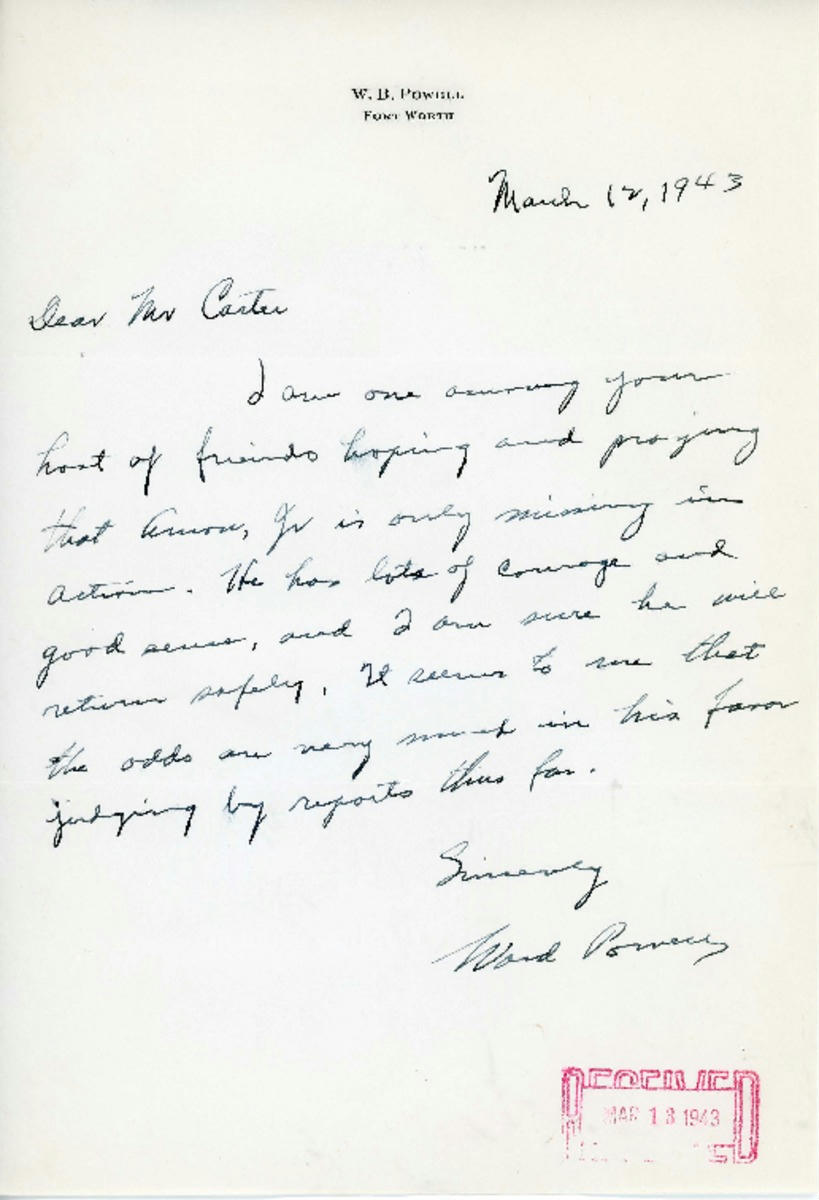 W. B. POWELL
FORT WORTH
March 12, 1943
Dear Mr Carter
I am one among your
host of friends hoping and praying
that Amon, Jr is only missing in
action. He has lots of courage and
good sense, and I am sure he will
return safely. It seems to me that
the odds are very much in his favor
judging by reports thus far.
Sincerely
Ward Powell
RECEIVED
MAR 13 1943